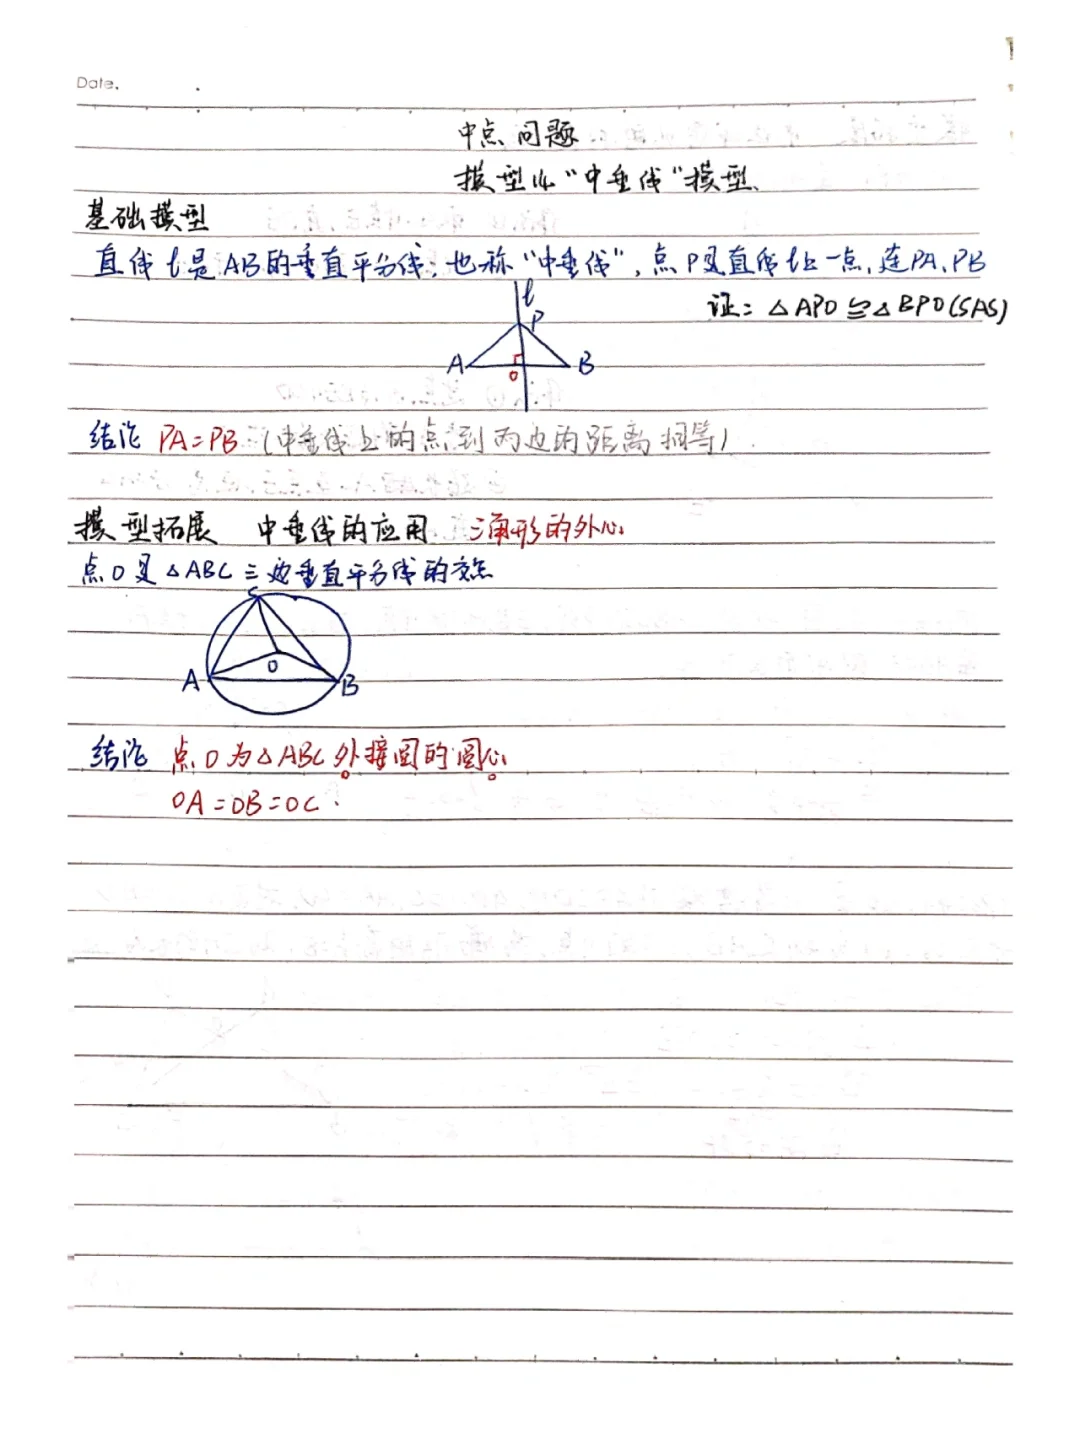 Date.
中点问题
模型14 "中垂线"模型
基础模型
直线l是AB的垂直平分线,也称"中垂线",点P是直线l上一点,连PA、PB
证: △APO≌△BPO(SAS)
l
P
A
B
O
结论 PA=PB (中垂线上的点到两边的距离相等)
模型拓展 中垂线的应用 三角形的外心
点O是△ABC三边垂直平分线的交点
C
O
A
B
结论 点O为△ABC外接圆的圆心
OA=OB=OC.